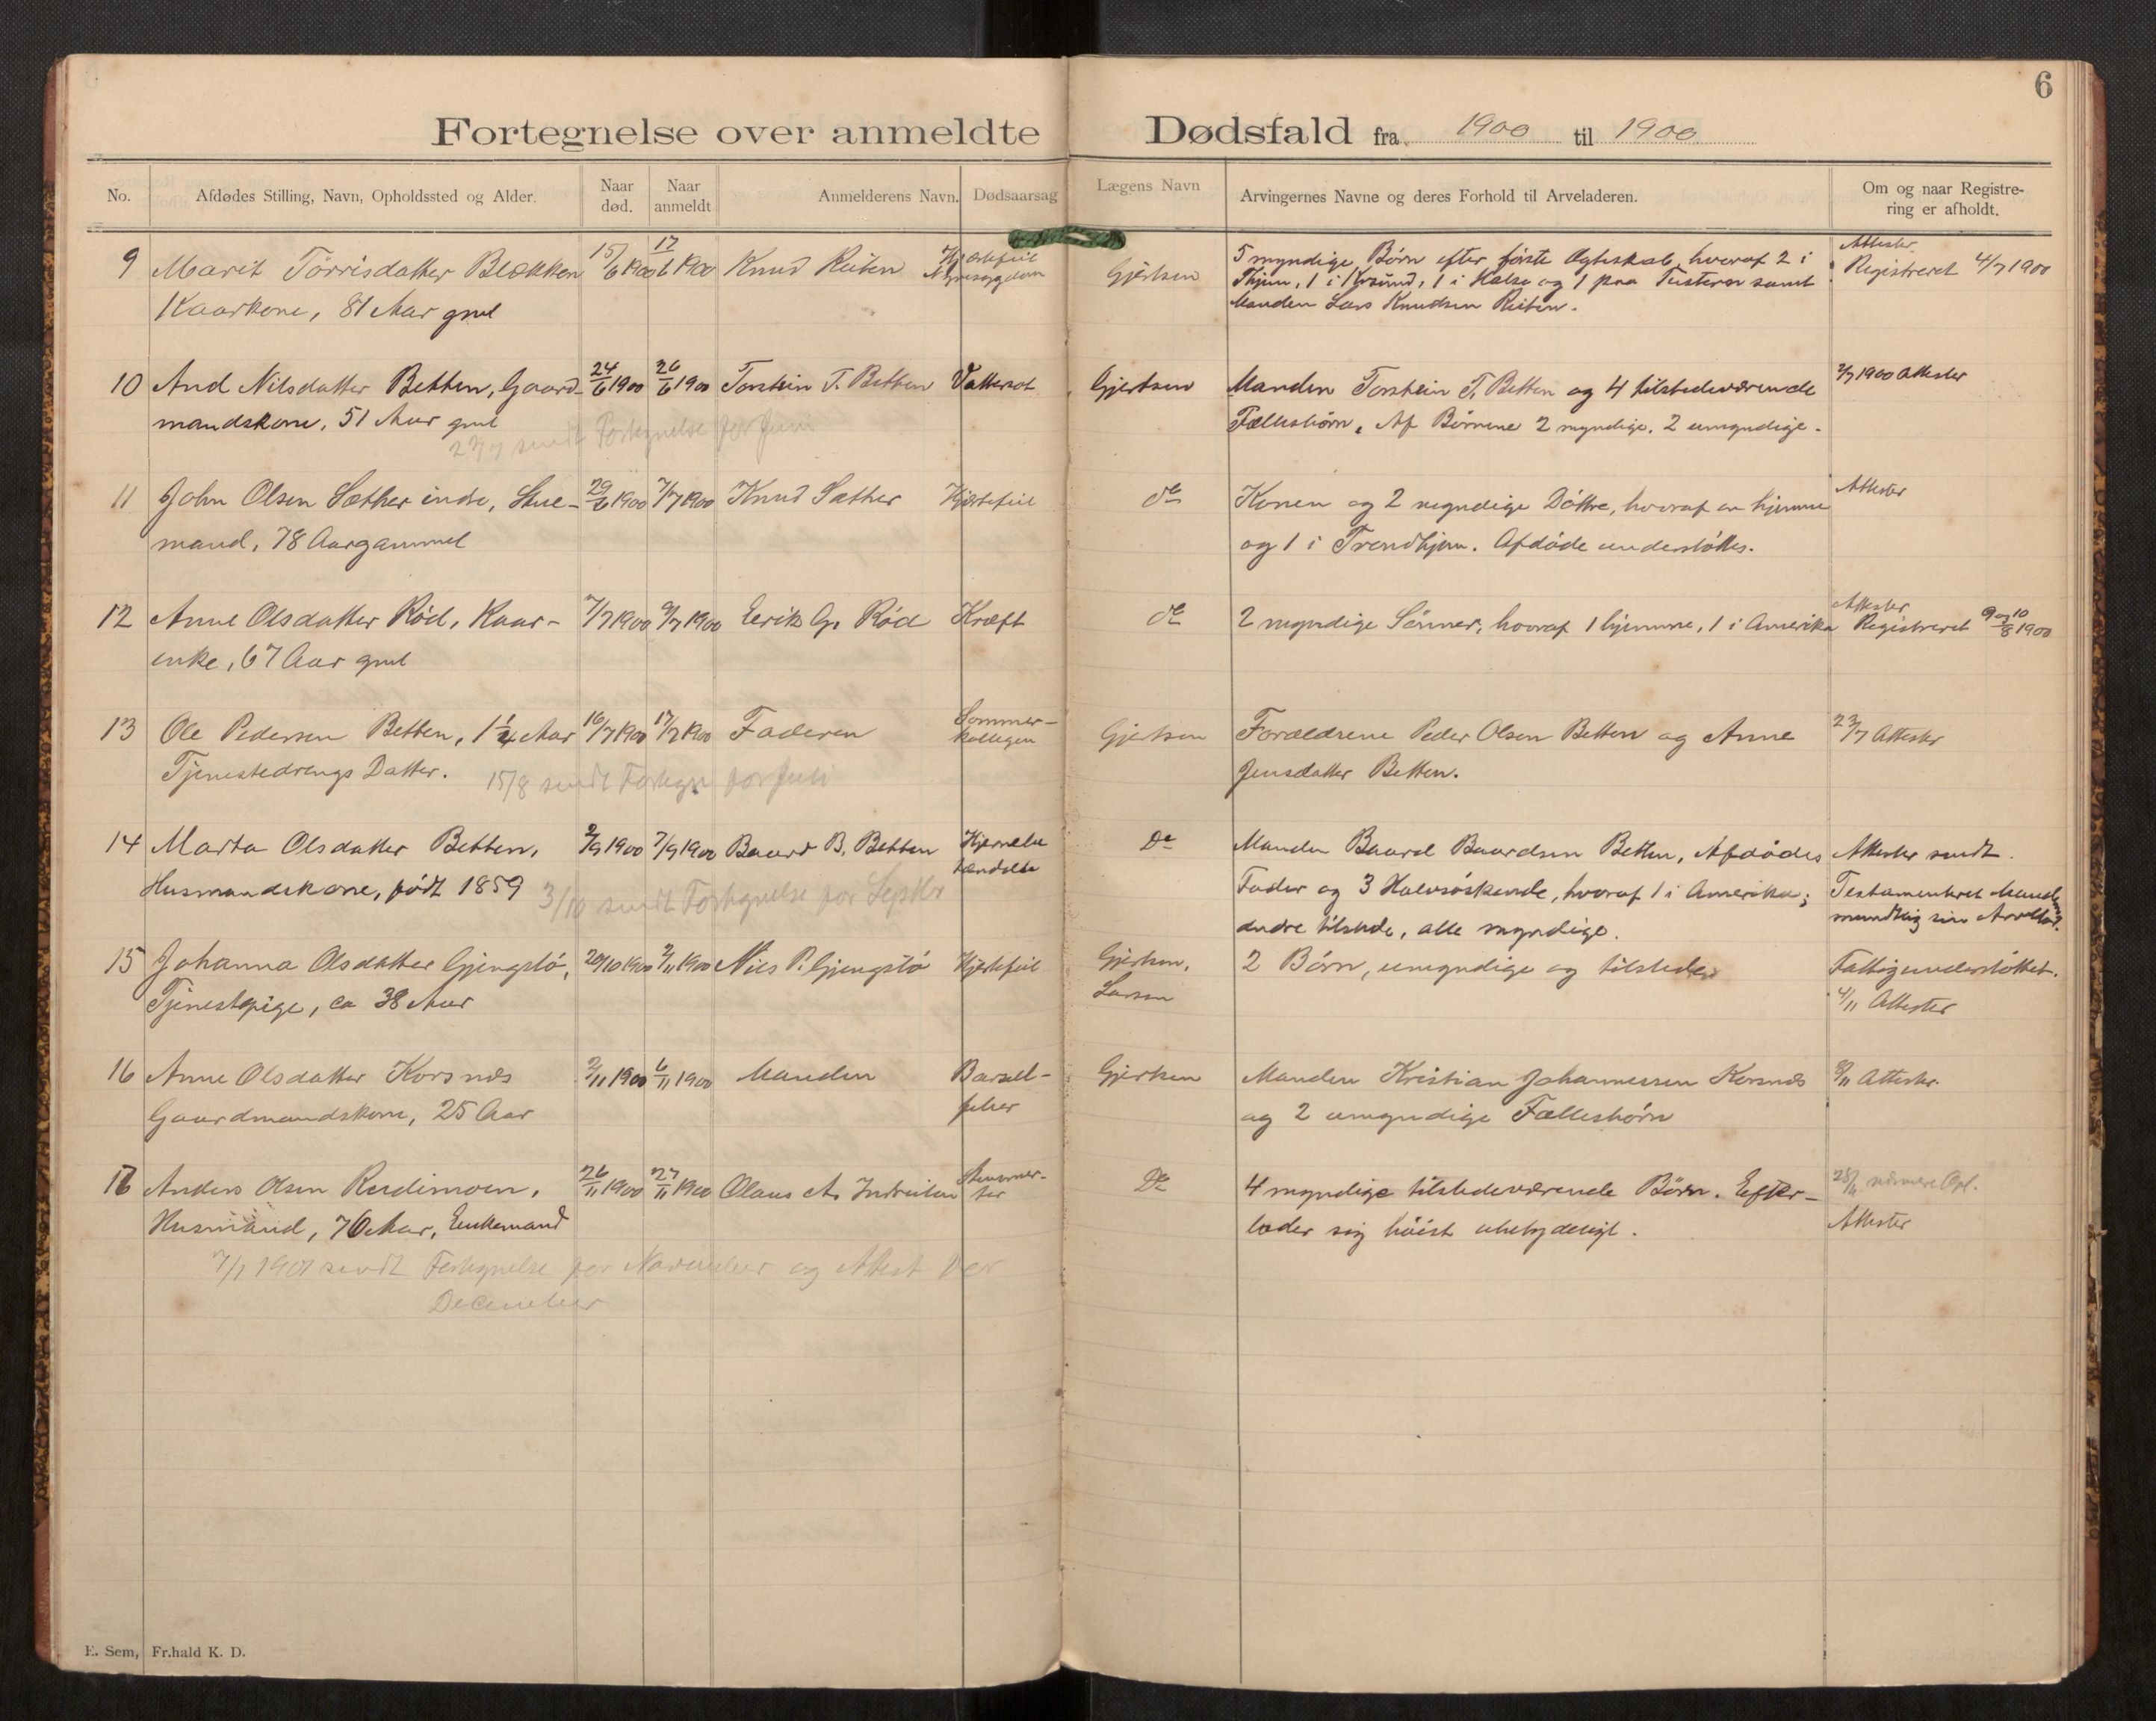 6
Fortegnelse over anmeldte Dødsfald fra 1900 til 1900
No. Afdødes Stilling, Navn, Opholdssted og Alder. Naar død. Naar anmeldt Anmelderens Navn. Dødsaarsag Lægens Navn Arvingernes Navne og deres Forhold til Arveladeren. Om og naar Registrering er afholdt.
9 Marit Tørrisdatter Blækken 15/6 1900 17/6 1900 Knud Reiten Hjertefeil Gjertsen 5 myndige Børn efter første Ægteskab, hvoraf 2 i Attester
Kaarkone, 81 Aar gml Nyresygdom Thjem, 1 i Krsund, 1 i Halsa og 1 paa Tustern samt Registreret 4/7 1900
Manden Lars Knudsen Reiten.
10 And Nilsdatter Betten, Gaard- 24/6 1900 26/6 1900 Torstein T. Betten Vattersot Gjertsen Manden Torstein T. Betten og 4 tilstedeværende 2/7 1900 Attester
mandskone, 51 Aar gml Fællesbørn. Af Børnene 2 myndige, 2 umyndige.
sendt Fortegnelse for Juni
11 John Olsen Sæther indre, Stue- 29/6 1900 7/7 1900 Knud Sæther Hjertefeil do Konen og 2 myndige Døttre, hvoraf en hjemme Attester
mand, 78 Aar gammel og 1 i Trondhjem. Afdøde understøttes.
12 Anne Olsdatter Rød, Kaar- 7/7 1900 9/7 1900 Eerik G. Rød Kræft do 2 myndige Sønner, hvoraf 1 hjemme, 1 i Amerika Attester
enke, 67 Aar gml Registreret 9 og 10/8 1900
13 Ole Pedersen Betten, 1 1/4 Aar 16/7 1900 17/7 1900 Faderen Sommer- Gjertsen Forældrene Peder Olsen Betten og Anne 23/7 Attester
Tjenestedrengs Datter. kollegen Jensdatter Betten.
15/8 sendt Fortegn for Juli
14 Marta Olsdatter Betten, 2/9 1900 7/9 1900 Baard B. Betten Hjernebe- Do Manden Baard Baardsen Betten, Afdødes Attester sendt.
Husmandskone, født 1859 tændelse Fader og 3 Halvsøskende, hvoraf 1 i Amerika; Testamenteret Manden
3/10 sendt Fortegnelse for Septbr andre tilstede, alle myndige. mundtlig sin Arvelod.
15 Johanna Olsdatter Gjengstø, 20/10 1900 2/11 1900 Nils P. Gjengstø Hjertefeil Gjertsen, 2 Børn, umyndige og tilstede Fattigunderstøttet.
Tjenestepige, ca 38 Aar Larsen 4/11 Attester
16 Anne Olsdatter Korsnes 2/11 1900 6/11 1900 Manden Barsel- Gjertsen Manden Kristian Johannessen Korsnæs 8/11 Attester.
Gaardmandskone, 25 Aar feber og 2 umyndige Fællesbørn
17 Anders Olsen 26/11 1900 27/11 1900 Olaus A. Do 4 myndige tilstedeværende Børn. Efter- 28/11 nærmere Opl.
Husmand, 76 Aar, Enkemand lader sig høist ubetydeligt. Attester
7/1 1901 sendt Fortegnelse for November og Attest for
December
E. Sem, Fr.hald K. D.